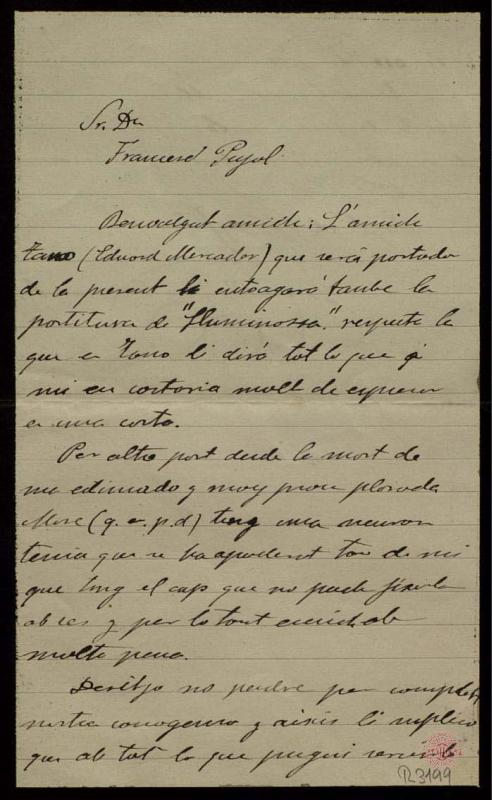 Sr. Dn
Francesch Pujol
Benvolgut amich: L'amich
Tano (Eduard Mercador) que será portador
de la present li entregará tambe la
partitura de "Lluminossa" respecte la
que en Tano li dirá tot lo que á
mi en costaria molt de expresar
en una carta.
Per altre part desde la mort de
ma estimada y may prou plorada
Mare (q. e. p. d) ting una neuras
tenia que se ha apoderat tan de mi
que ting el cap que no puch fixarla
ab res y per lo tant escrich ab
molta pena.
Desitjo no perdre per complet
nostra conegensa y aixis li suplico
que ab tot lo que pugui servirlo
R3199